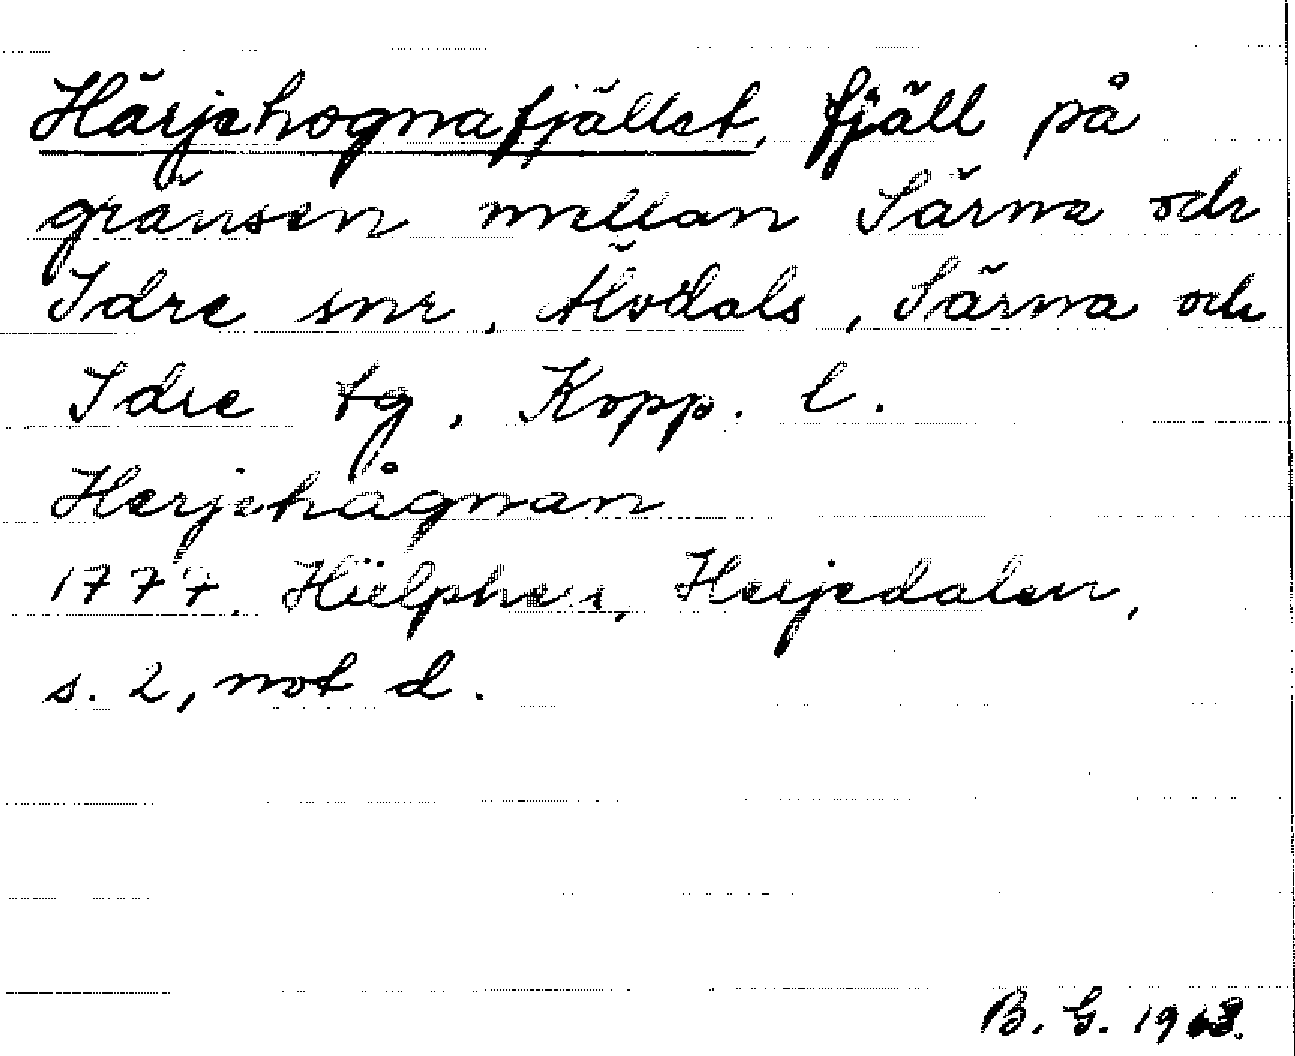 Härjehognafjället, fjäll på
gränsen mellan Särna och
Idre snr, Älvdals, Särna och
Idre tg. Kopp. l.
Herjehågnan
1777. Hülphers, Herjedalen,
s. 2, not d.
B. G. 1968.